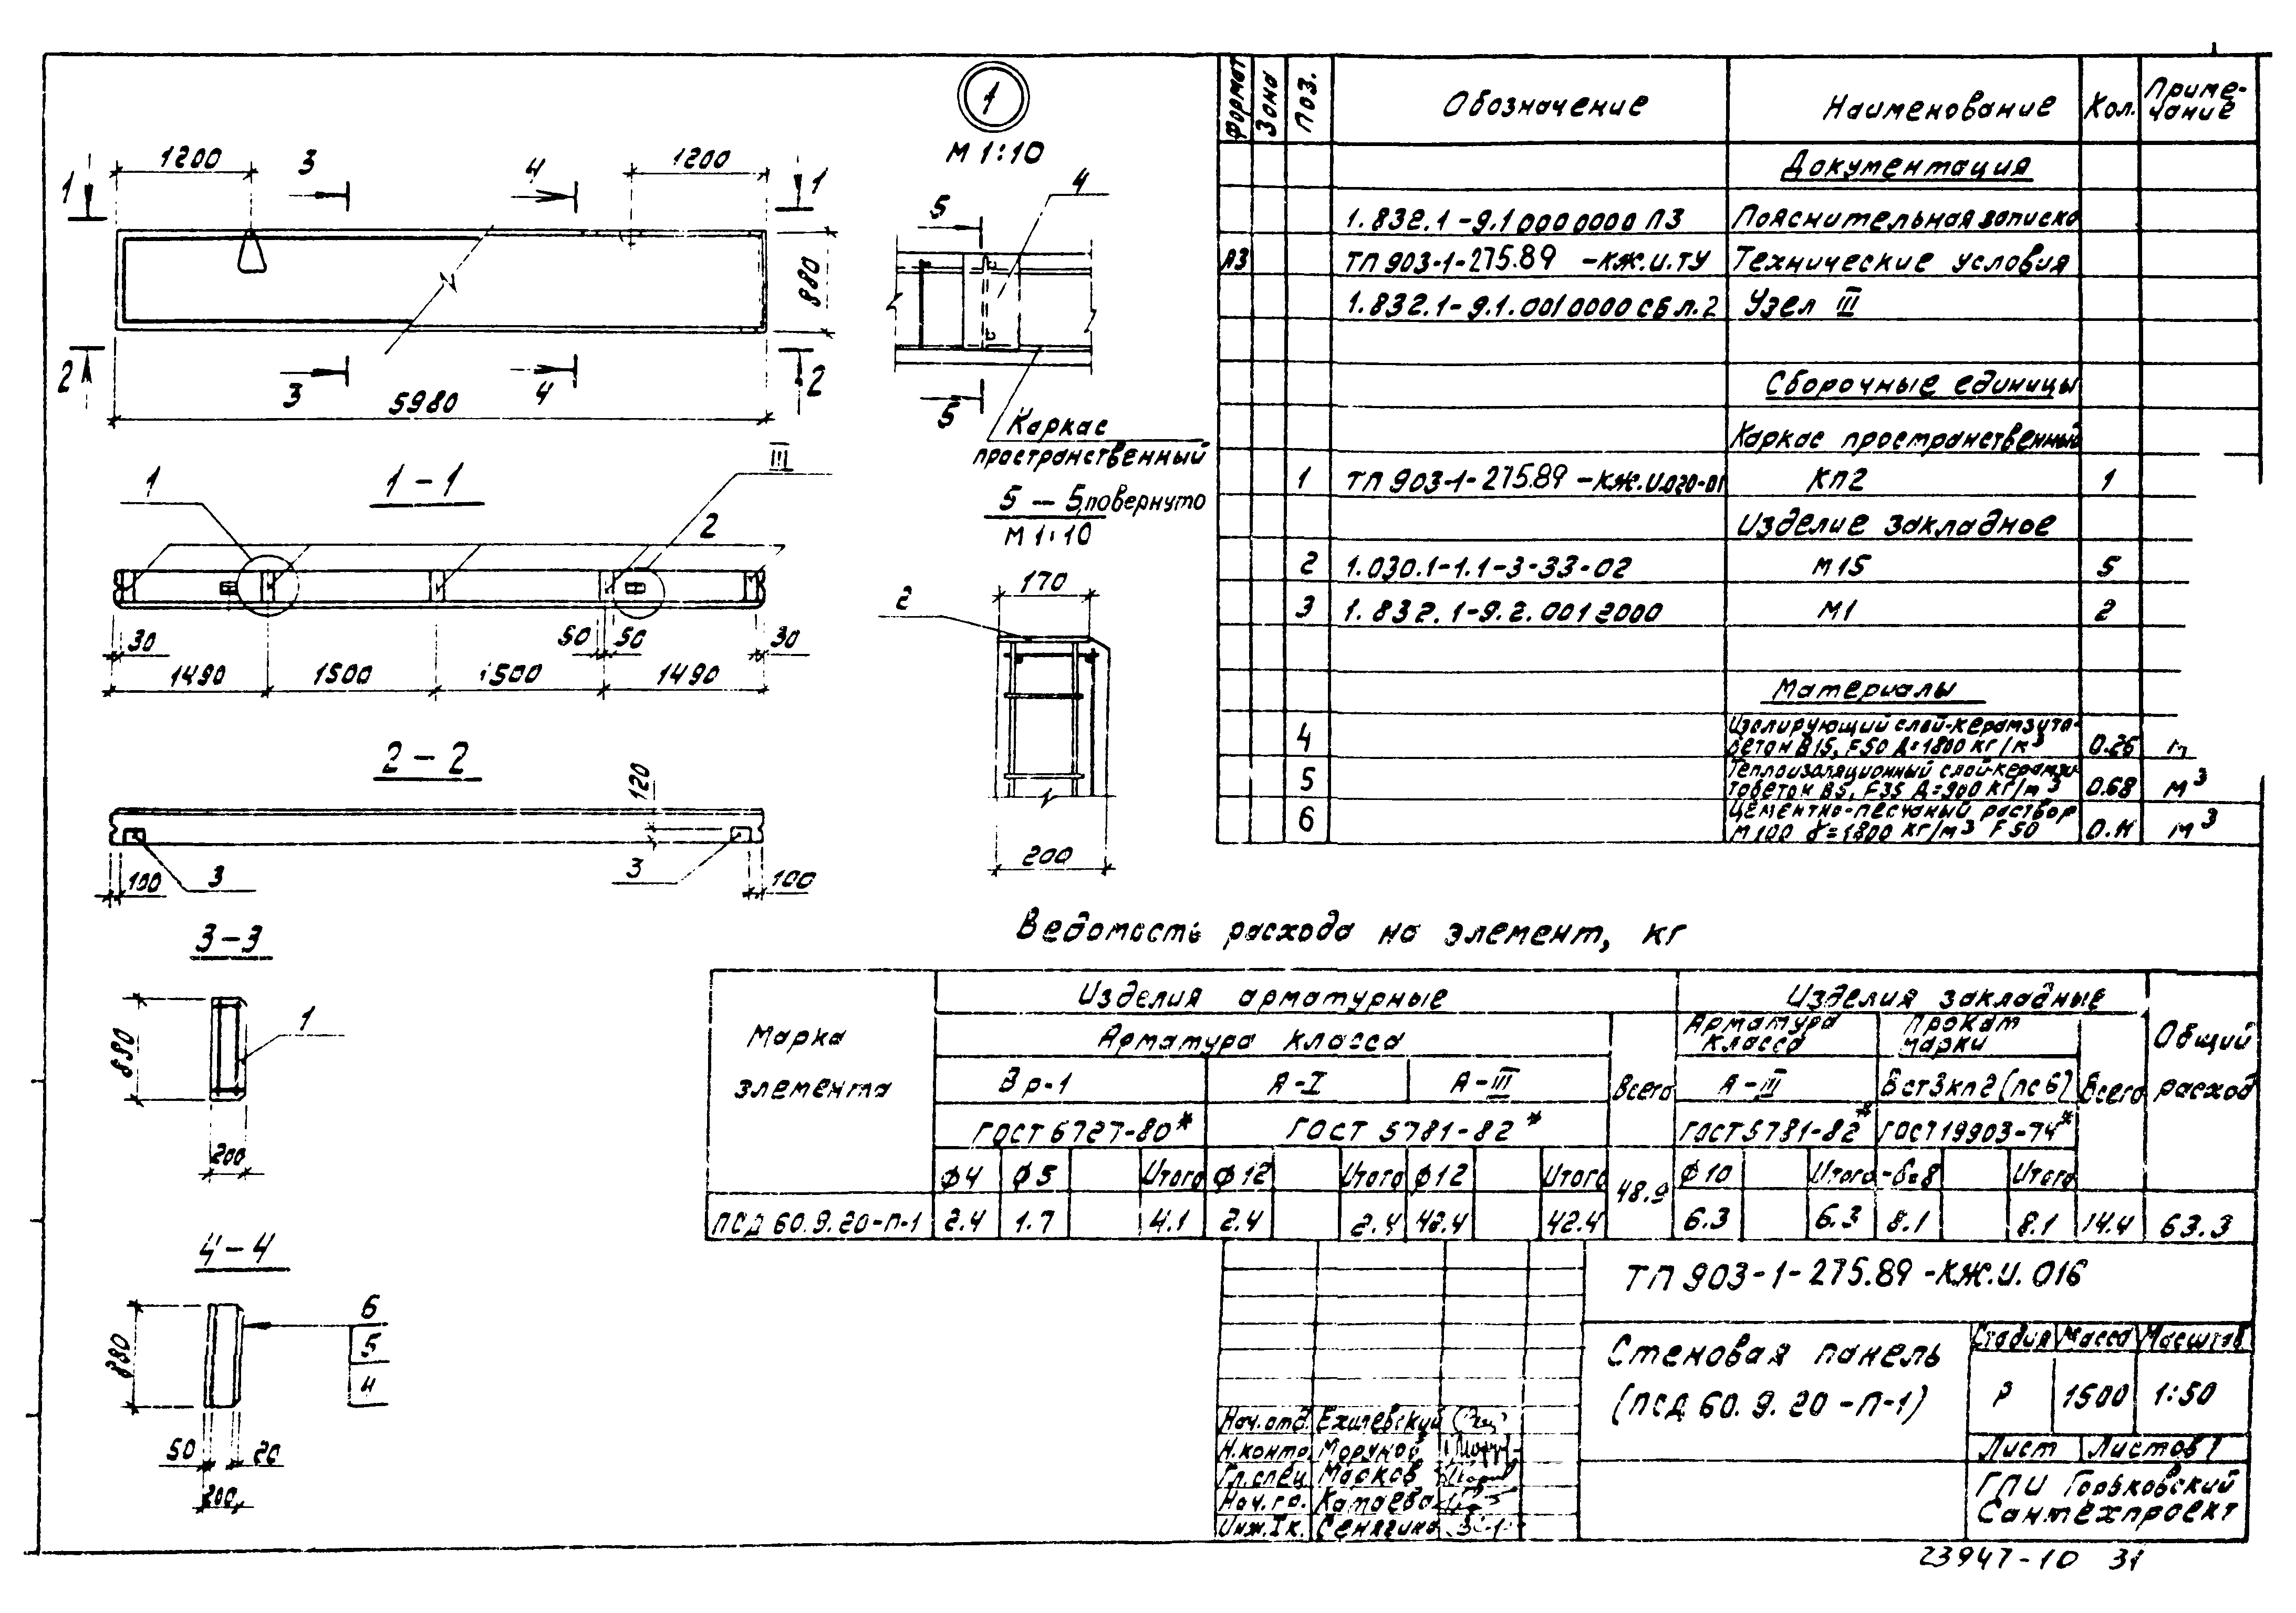 1200
3
4
1200
1
1
880
2
3
4
2
5980
1
М 1:10
4
5
5
Каркас
пространственный
1
1-1
III
2
30
50
50
30
1490
1500
1500
1490
5 – 5, повернуто
М 1:10
170
2
200
2-2
120
3
3
100
100
3-3
880
1
200
4-4
880
6
5
4
50
20
200
Формат Зона Поз. Обозначение Наименование Кол. Приме-
чание
Документация
1.832.1-9.1 000 0000 ПЗ Пояснительная записка
А3 ТП 903-1-275.89 -КЖ.И.ТУ Технические условия
1.832.1-9.1.001 0000 СБ л.2 Узел III
Сборочные единицы
Каркас пространственный
1 ТП 903-1-275.89 -КЖ.И.020-01 КП2 1
Изделие закладное
2 1.030.1-1.1-3-33-02 М15 5
3 1.832.1-9.2.001 2000 М1 2
Материалы
Изолирующий слой-керамзито-
4 бетон В15, F50 Д=1800 кг/м³ 0.26 м
Теплоизоляционный слой-керамзи-
5 тобетон В5, F35 Д=900 кг/м³ 0.68 м³
Цементно-песчаный раствор
6 М100 γ=1800 кг/м³ F50 0.11 м³
Ведомость расхода на элемент, кг
Марка
элемента
Изделия арматурные
Изделия закладные
Общий
расход
Арматура класса
Всего
Арматура
класса
Прокат
марки
Всего
Вр-1 А-I А-III А-III Вст3кп2 (пс6)
ГОСТ 6727-80* ГОСТ 5781-82* ГОСТ 5781-82* ГОСТ 19903-74*
ф4 ф5 Итого ф12 Итого ф12 Итого 48.9 ф10 Итого -б=8 Итого
ПСД 60.9.20-П-1 2.4 1.7 4.1 2.4 2.4 42.4 42.4 6.3 6.3 8.1 8.1 14.4 63.3
ТП 903-1-275.89 -КЖ.И. 016
Стеновая панель
(ПСД 60.9.20 -П-1)
Стадия Масса Масштаб
Р 1500 1:50
Лист Листов 1
ГПИ Горьковский
Сантехпроект
Нач.отд. Ехилевский
Н.контр.
Гл.спец. Марков
Нач.гр. Катаева
Инж.Iк. Сенягина
23947-10 31